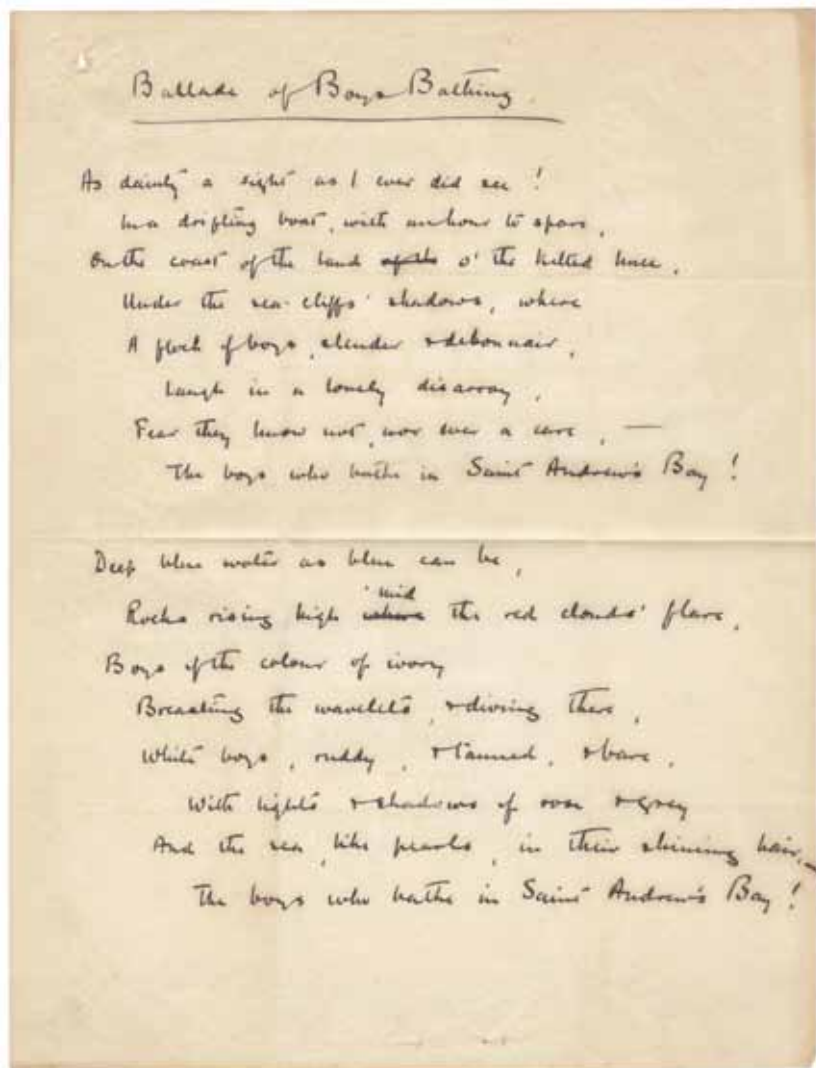 Ballade of Boys Bathing.
As dainty a sight as I ever did see!
In a drifting boat, with an hour to spare,
On the coast of the land o' the kilted knee,
Under the sea-cliffs' shadows, where
A flock of boys, slender & debonnair,
Laugh in a lovely disarray,
Fear they know not, nor ever a care, —
The boys who bathe in Saint Andrew's Bay!
Deep blue water as blue can be,
Rocks rising high 'mid the red clouds' flare,
Boys of the colour of ivory
Breasting the wavelets, & diving there,
White boys, ruddy, & tanned, & bare,
With lights & shadows of rose & grey
And the sea, like pearls, in their shining hair, —
The boys who bathe in Saint Andrew's Bay!